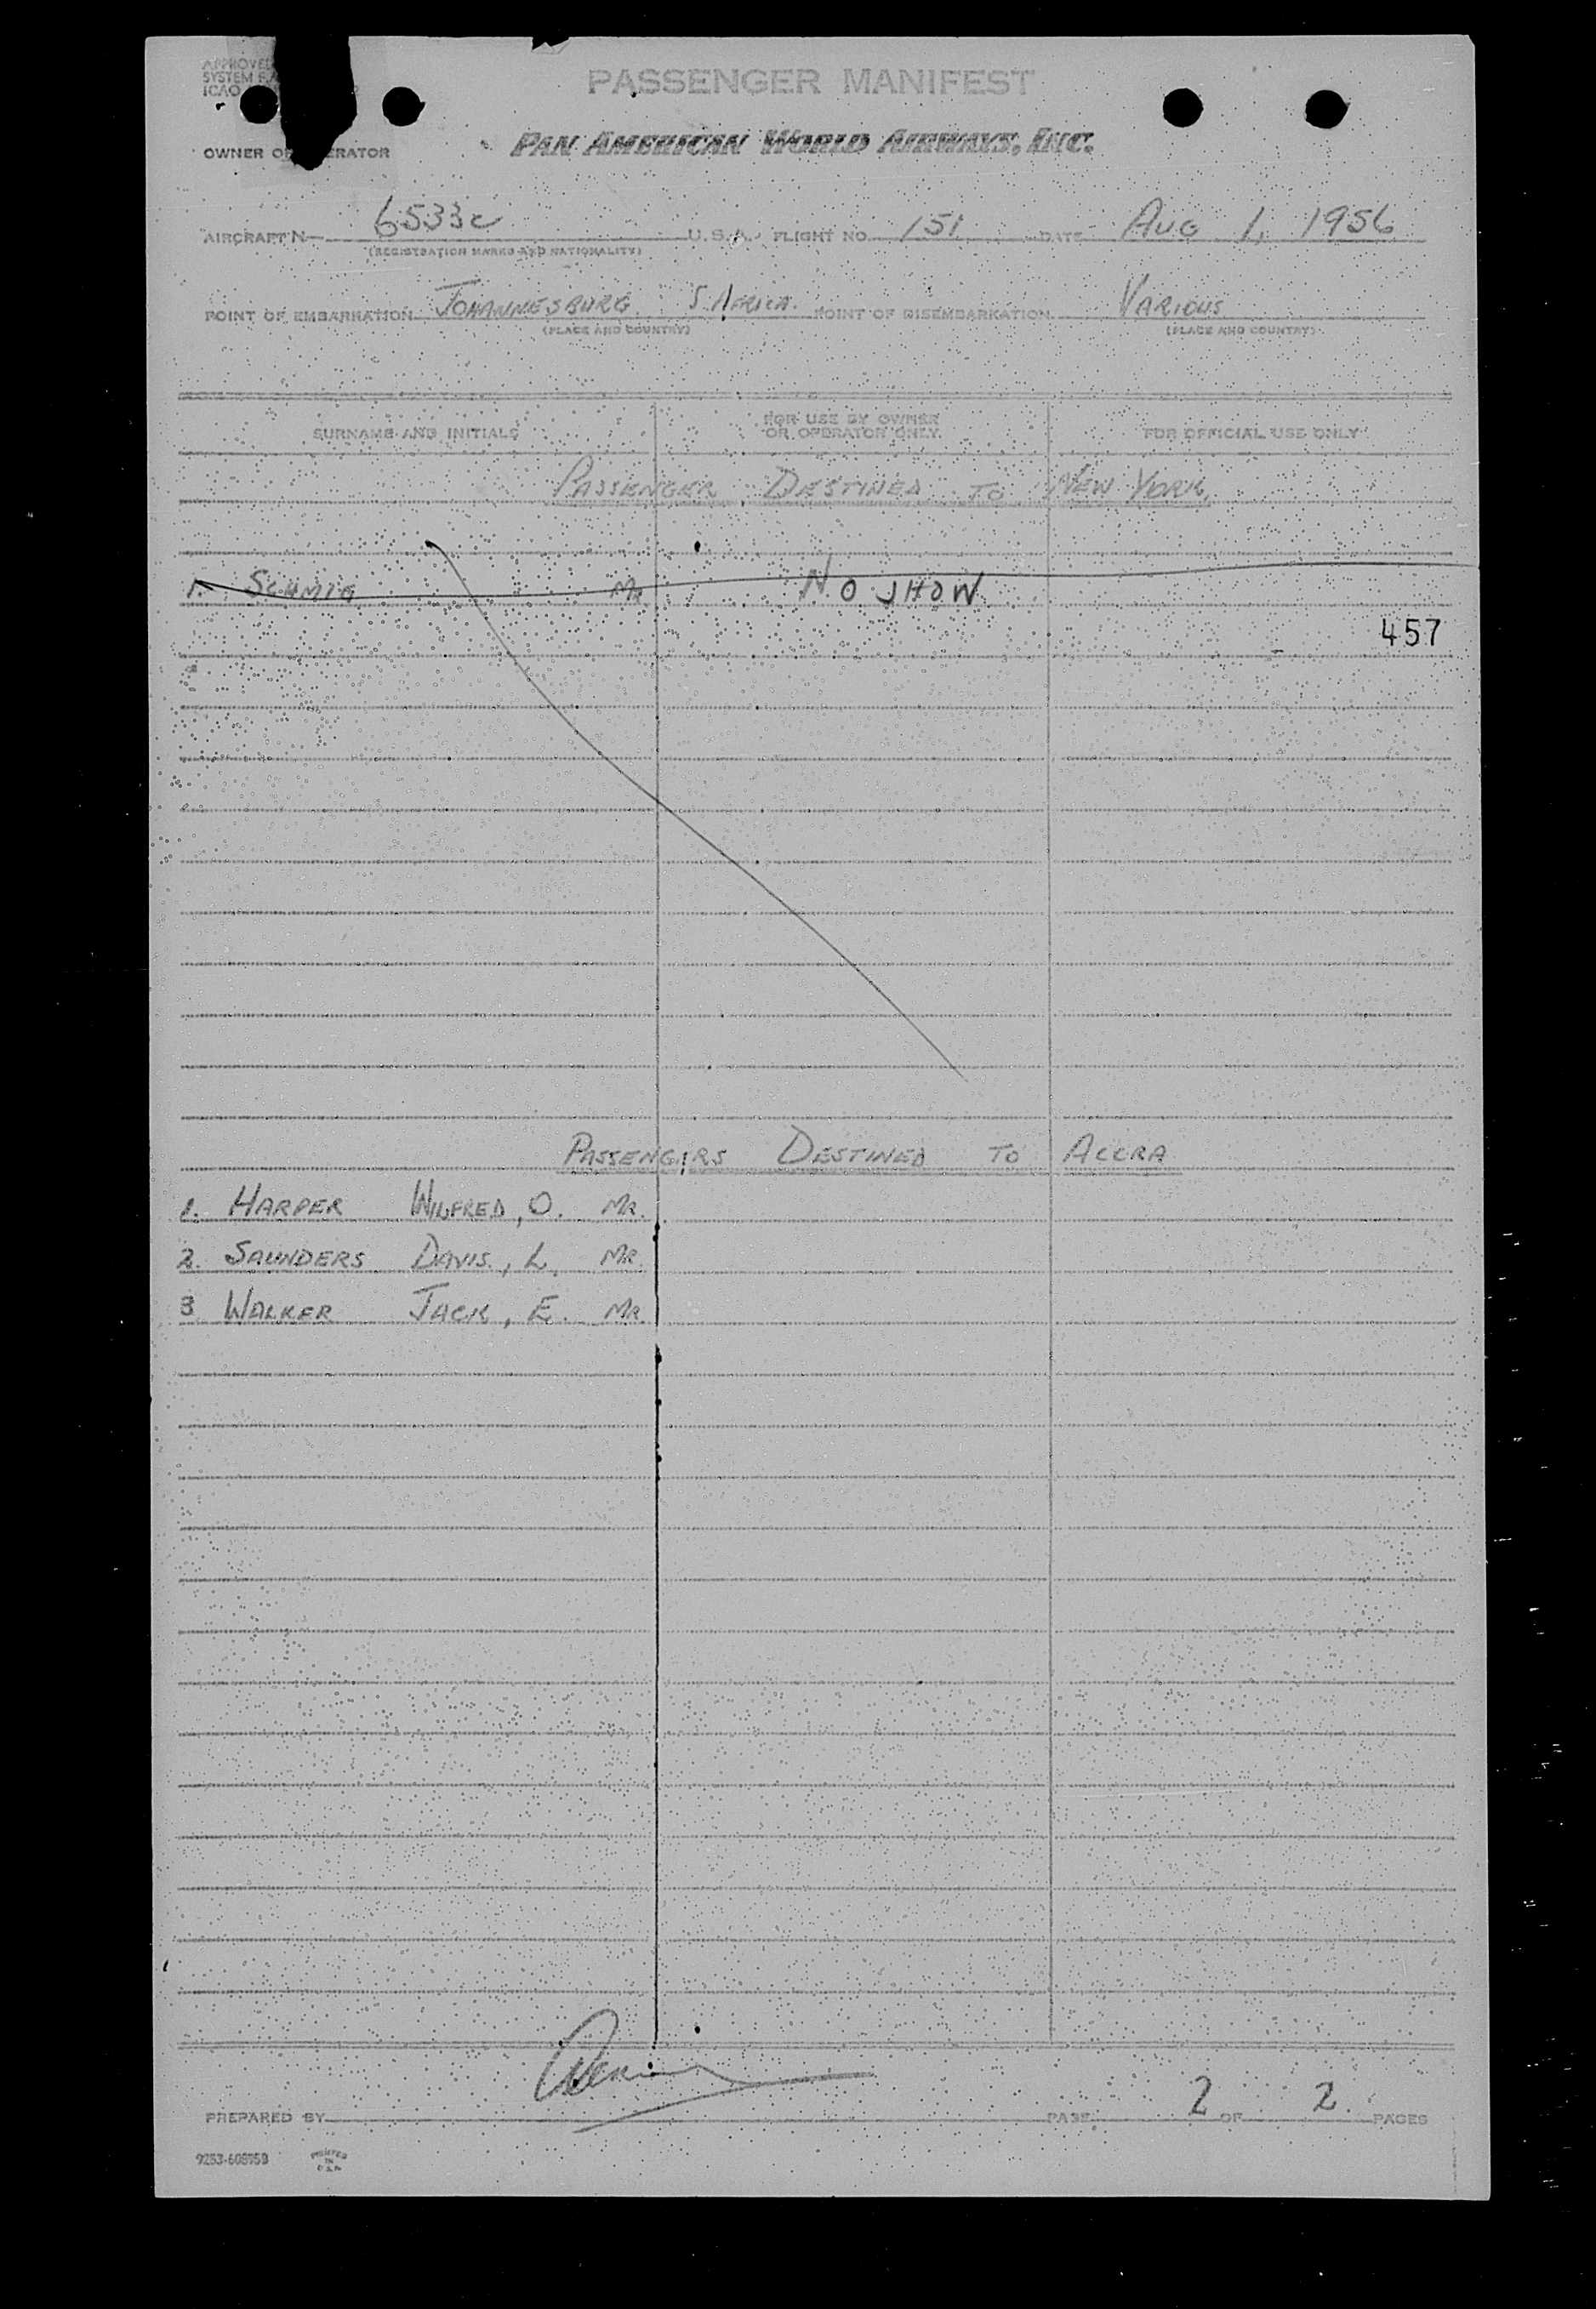 APPROVE
SYSTEM F
ICAO
PASSENGER MANIFEST
OWNER O ERATOR
PAN AMERICAN WORLD AIRWAYS, INC.
AIRCRAFT N— 6533c U.S.A. FLIGHT NO. 151 DATE AUG 1, 1956
(REGISTRATION MARKS AND NATIONALITY)
POINT OF EMBARKATION JOHANNESBURG S AFRICA. POINT OF DISEMBARKATION VARIOUS
(PLACE AND COUNTRY) (PLACE AND COUNTRY)
SURNAME AND INITIALS FOR USE BY OWNER OR OPERATOR ONLY FOR OFFICIAL USE ONLY
PASSENGER DESTINED TO NEW YORK.
1. MR. NO SHOW
457
PASSENGERS DESTINED TO ACCRA
1. HARPER WILFRED, O. MR.
2. SAUNDERS DAVIS, L. MR.
3 WALKER JACK, E. MR.
PREPARED BY PAGE 2 OF 2 PAGES
PRINTED
IN
U.S.A.